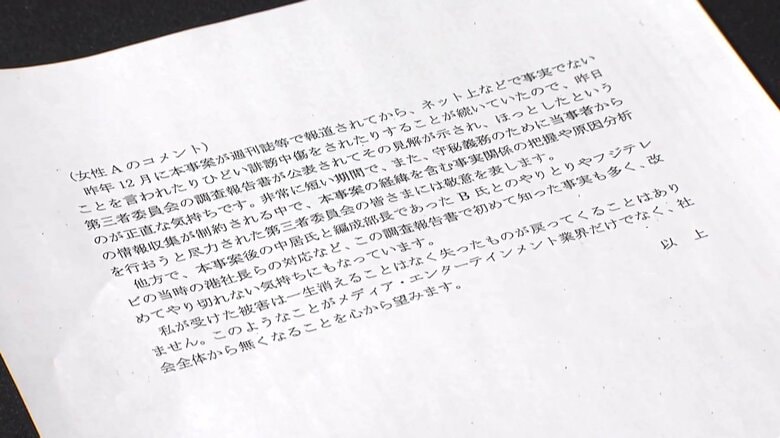 （女性Aのコメント）
昨年12月に本事案が週刊誌等で報道されてから、ネット上などで事実でない
ことを言われたりひどい誹謗中傷をされたりすることが続いていたので、昨日
第三者委員会の調査報告書が公表されてその見解が示され、ほっとしたという
のが正直な気持ちです。非常に短い期間で、また、守秘義務のために当事者から
の情報収集が制約される中で、本事案の経緯を含む事実関係の把握や原因分析
を行おうと尽力された第三者委員会の皆さまには敬意を表します。
他方で、本事案後の中居氏と編成部長であったB氏とのやりとりやフジテレ
ビの当時の港社長らの対応など、この調査報告書で初めて知った事実も多く、改
めてやり切れない気持ちにもなっています。
私が受けた被害は一生消えることはなく失ったものが戻ってくることはあり
ません。このようなことがメディア・エンターテインメント業界だけでなく、社
会全体から無くなることを心から望みます。
以 上